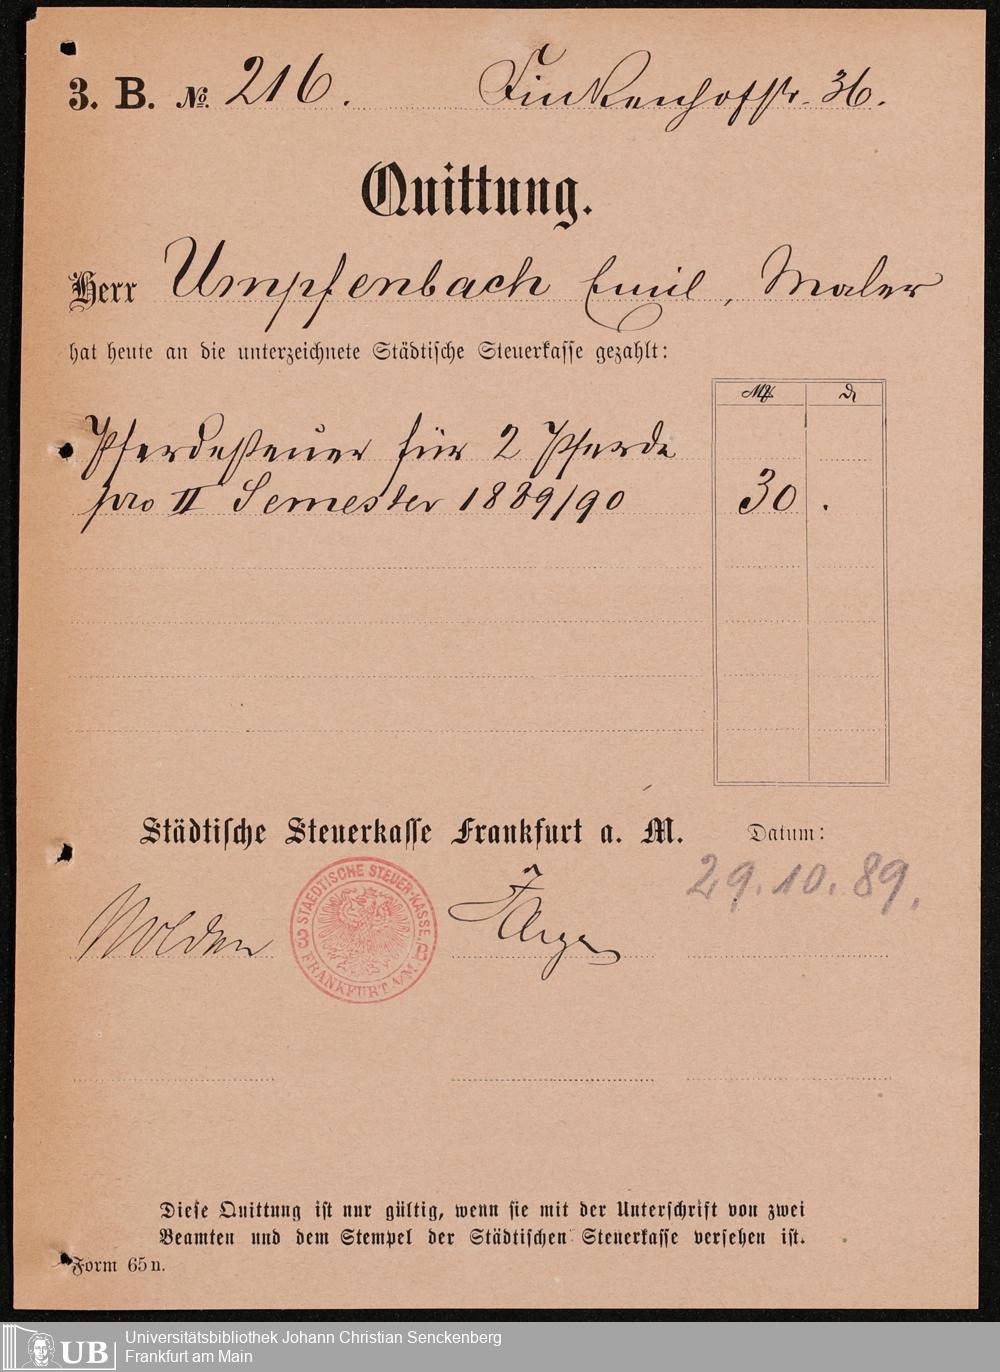 3. B. No. 216. Finkenhofstr. 36.
Quittung.
Herr Umpfenbach Emil, Maler
hat heute an die unterzeichnete Städtische Steuerkasse gezahlt:
M. ₰
Pferdesteuer für 2 Pferde
pro II Semester 1889/90 30 .
Städtische Steuerkasse Frankfurt a. M. Datum:
29.10.89.
STAEDTISCHE STEUER-KASSE.
3 B
FRANKFURT A/M.
Diese Quittung ist nur gültig, wenn sie mit der Unterschrift von zwei
Beamten und dem Stempel der Städtischen Steuerkasse versehen ist.
Form 65 n.
UB
Universitätsbibliothek Johann Christian Senckenberg
Frankfurt am Main